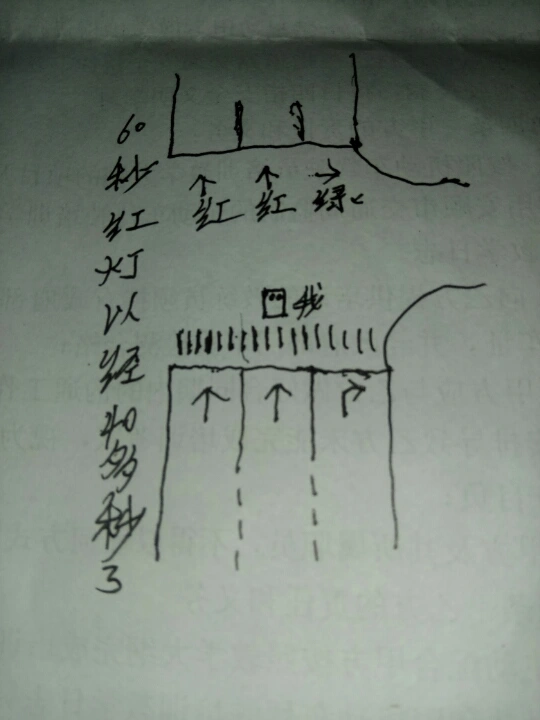 60
秒
红
灯
以
经
40
多
秒
了
红 红 绿
我